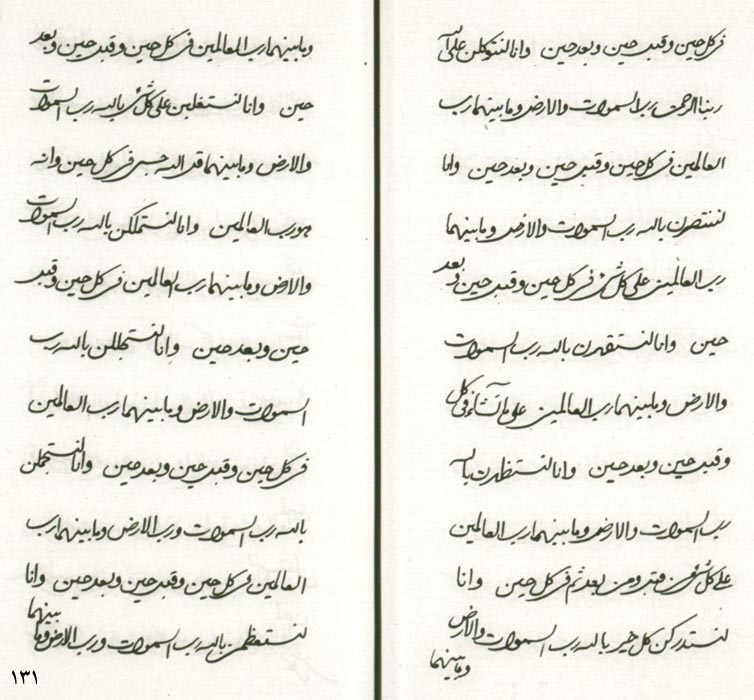 فی کل حین وقبل حین وبعد حین وانا لنتوکلن علی الله
ربنا الرحمن رب السموات والارض وما بینهما رب
العالمین فی کل حین وقبل حین وبعد حین وانا
لنستنصرن بالله رب السموات والارض وما بینهما
رب العالمین علی کل شئ فی کل حین وقبل حین وبعد
حین وانا لنستقهرن بالله رب السموات
والارض وما بینهما رب العالمین علی ما نشاء فی کل
وقبل حین وبعد حین وانا لنستظهرن بالله
رب السموات والارض وما بینهما رب العالمین
علی کل شئ من قبل ومن بعد ثم فی کل حین وانا
لنستدرکن کل خیر بالله رب السموات والارض
وما بینهما
وما بینهما رب العالمین فی کل حین وقبل حین وبعد
حین وانا لنستغلبن علی کل شئ بالله رب السموات
والارض وما بینهما قل الله حسبی فی کل حین وانه
هو رب العالمین وانا لنستملکن بالله رب السموات
والارض وما بینهما رب العالمین فی کل حین وقبل
حین وبعد حین وانا لنستجللن بالله رب
السموات والارض وما بینهما رب العالمین
فی کل حین وقبل حین وبعد حین وانا لنستجملن
بالله رب السموات ورب الارض وما بینهما رب
العالمین فی کل حین وقبل حین وبعد حین وانا
لنستعظمن بالله رب السموات ورب الارض وما بینهما
۱۳۱